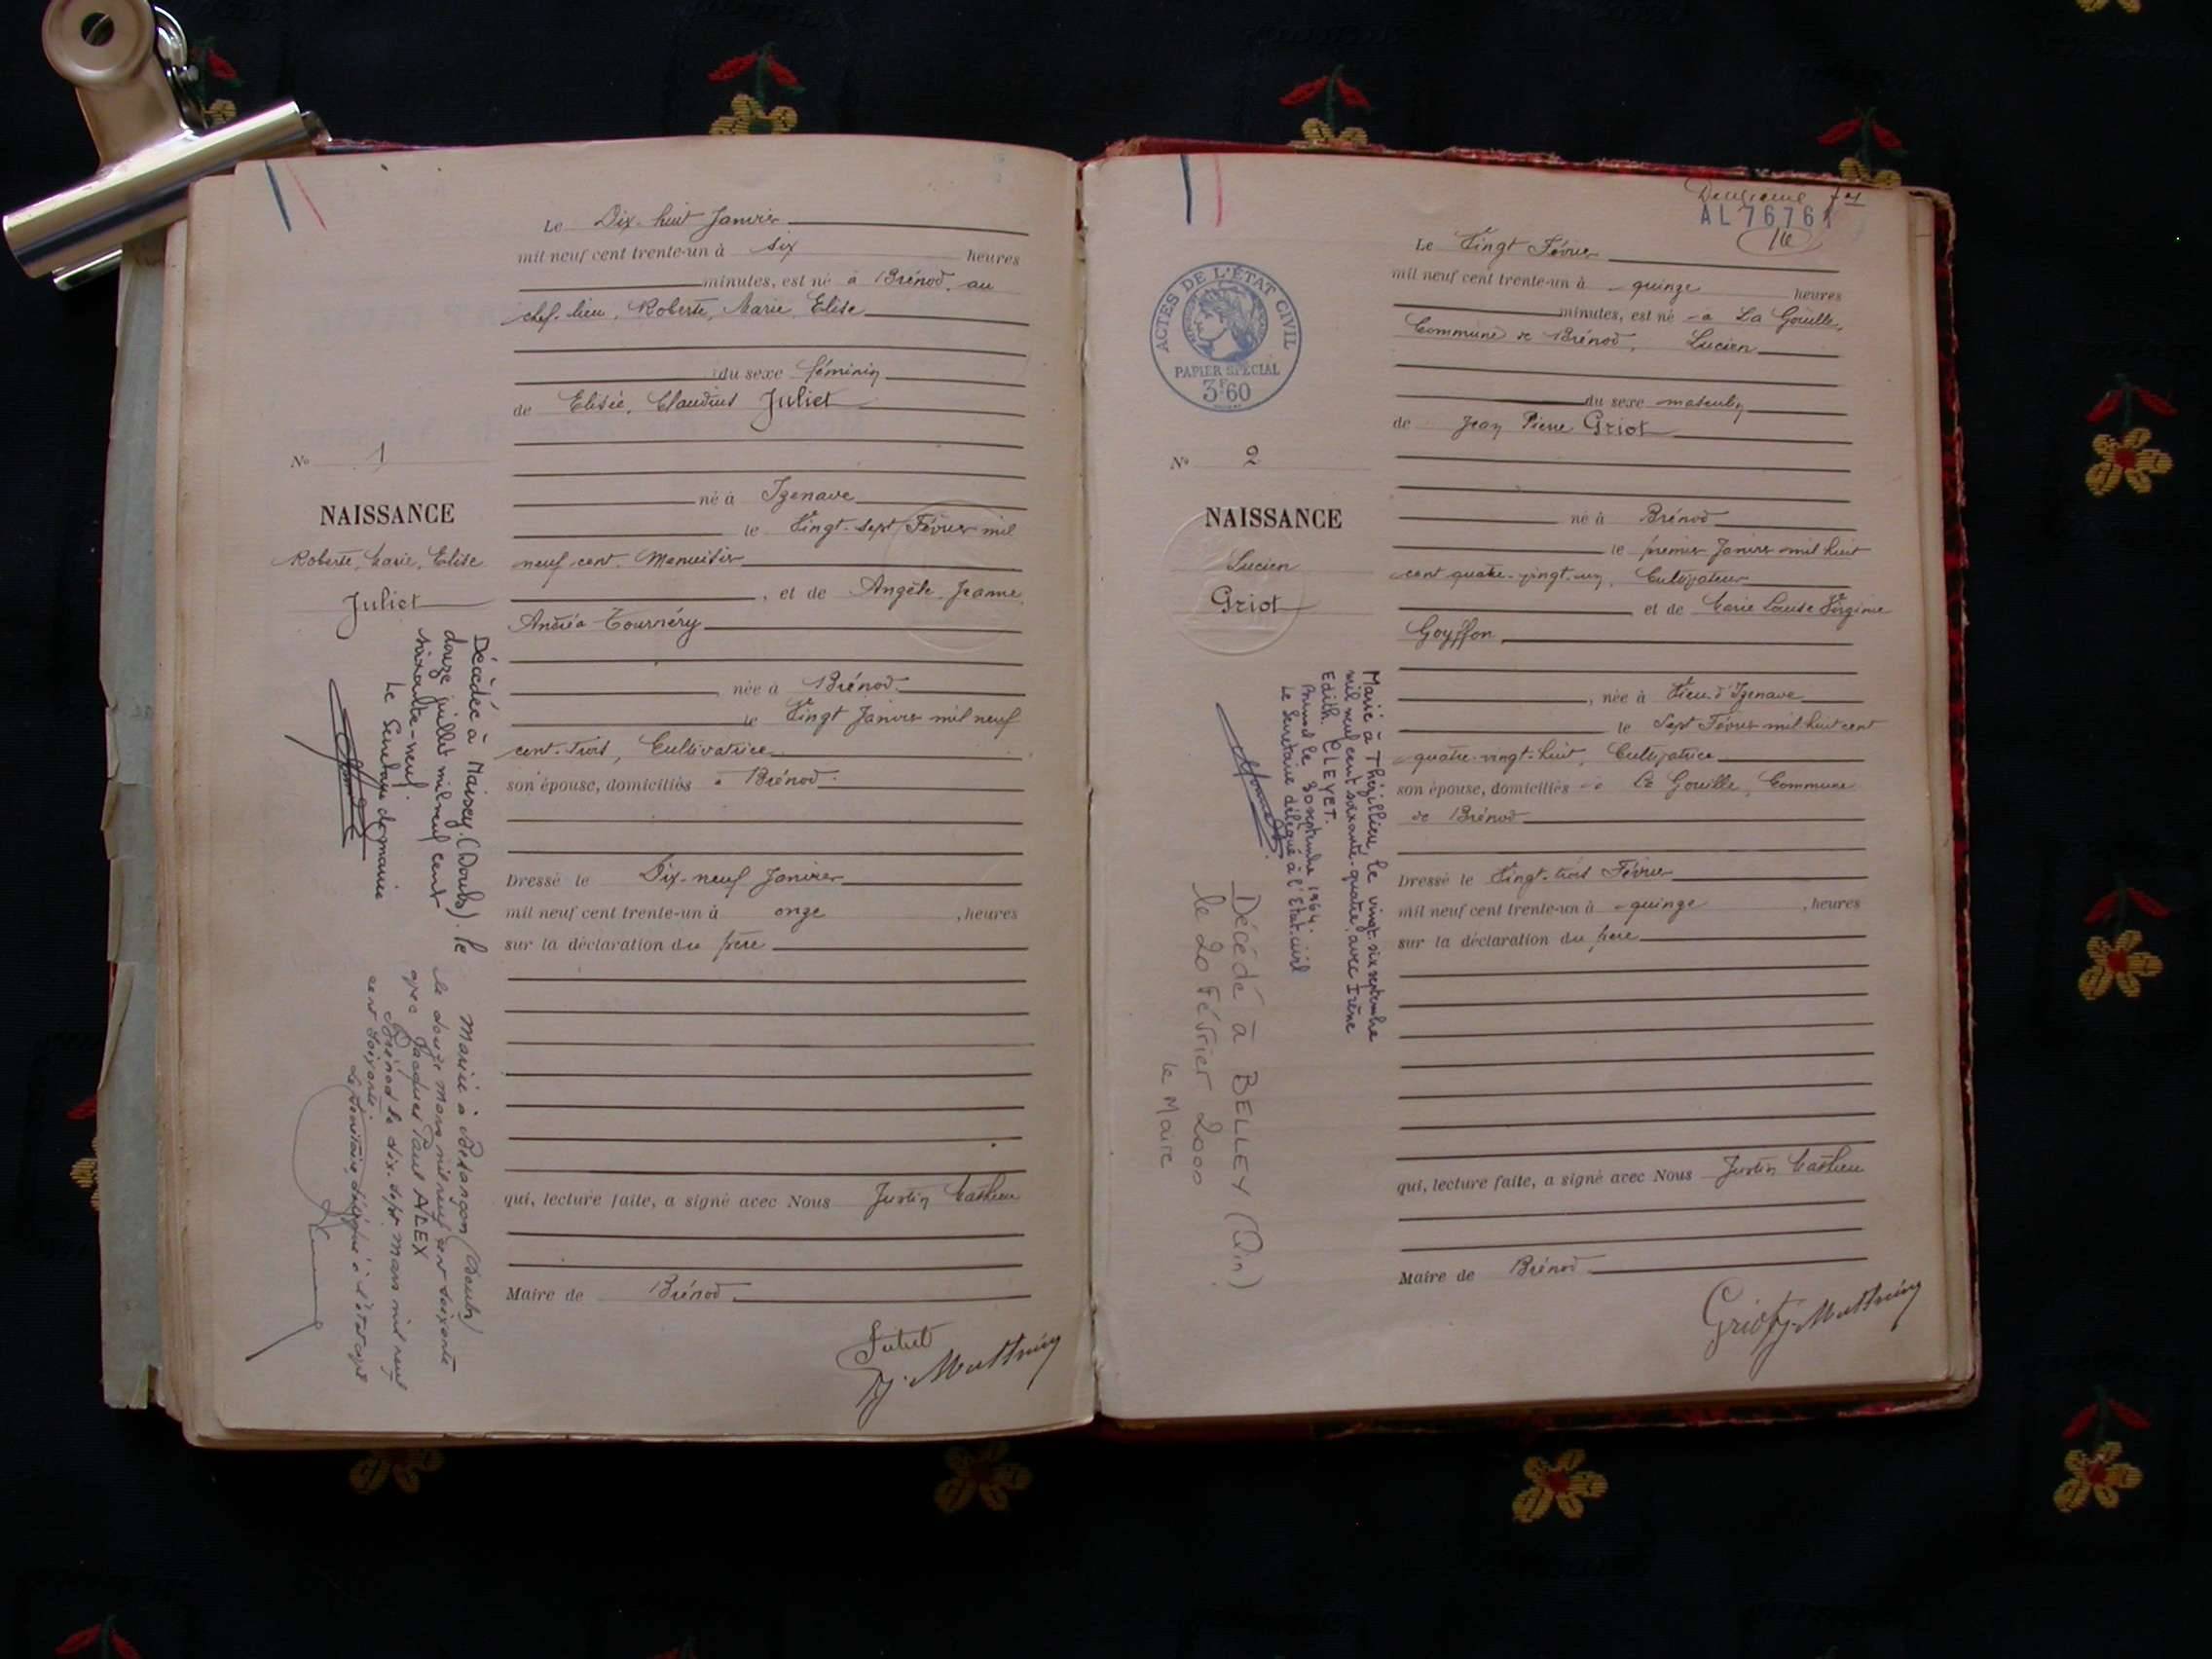 Le Dix-huit Janvier
mil neuf cent trente-un à six heures
minutes, est né à Brénod, au
chef-lieu, Roberte, Marie, Elise
du sexe féminin
de Elisée, Claudius Juliet
né à Izenave
le Vingt-sept Février mil
neuf cent, Menuisier
, et de Angèle Jeanne
Andréa Tournéry
, née à Brénod
le Vingt Janvier mil neuf
cent trois, Cultivatrice
son épouse, domiciliés à Brénod.
Dressé le Dix-neuf Janvier
mil neuf cent trente-un à onze , heures
sur la déclaration du père
qui, lecture faite, a signé avec Nous Justin
Maire de Brénod.
Juliet
No 1
NAISSANCE
Roberte, Marie, Elise
Juliet
Décédée à Maisey (Doubs). le
douze juillet mil neuf cent
soixante-neuf.
Le Secrétaire de mairie
Mariée à Besançon (Doubs)
le douze mars mil neuf cent soixante
avec Jacques Paul ALEX
Brénod le dix-sept mars mil neuf
cent soixante.
Le Secrétaire délégué à l'état civil
Deuxième
AL 76761
Le Vingt Février
mil neuf cent trente-un à quinze heures
minutes, est né à La Gouille,
Commune de Brénod, Lucien
du sexe masculin
de Jean Pierre Griot
né à Brénod
le premier Janvier mil huit
cent quatre-vingt-un, Cultivateur
et de Marie Louise Virginie
Goyffon
, née à Vieu d'Izenave
le Sept Février mil huit cent
quatre-vingt-huit, Cultivatrice
son épouse, domiciliés à La Gouille, Commune
de Brénod
Dressé le Vingt-trois Février
mil neuf cent trente-un à quinze , heures
sur la déclaration du père
qui, lecture faite, a signé avec Nous Justin
Maire de Brénod
Griot
ACTES DE L'ÉTAT CIVIL
PAPIER SPÉCIAL
3F60
No 2
NAISSANCE
Lucien
Griot
Marié à Thézillieu, le vingt-six septembre
mil neuf cent soixante-quatre, avec Irène
Edith CLEYET.
Brénod le 30 septembre 1964.
Le Secrétaire délégué à l'Etat-civil
Décédé à BELLEY (Ain)
le 20 Février 2000
le Maire